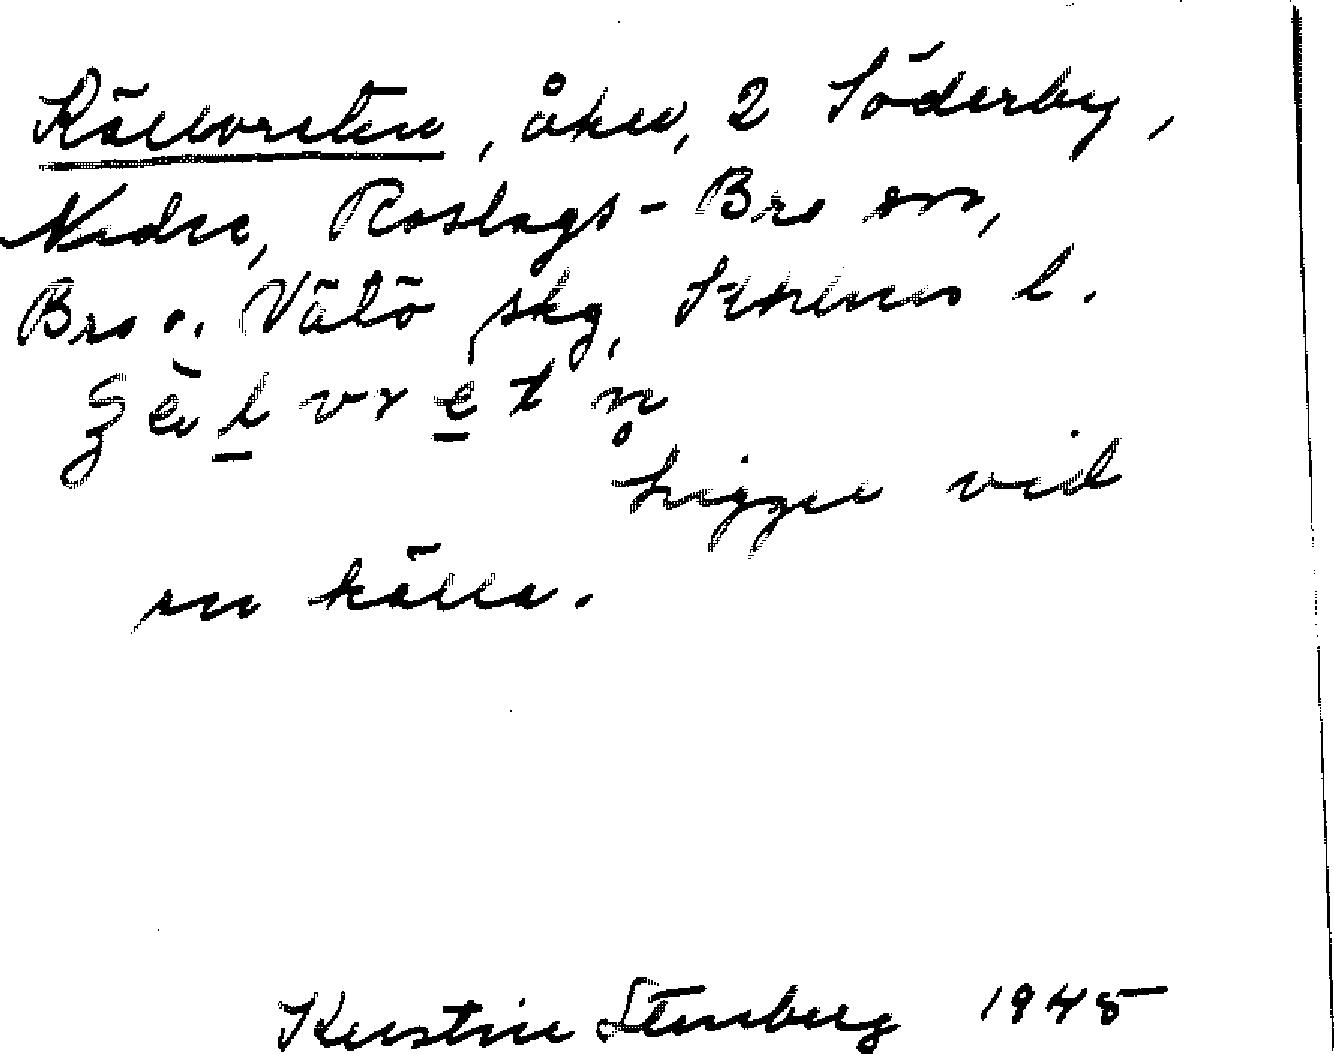 Källvreten, åker, 2 Söderby,
Nedre, Roslags-Bro sn,
Bro o. Vätö skg, Sthlms l.
Ligger vid
en källa.
Kerstin Stenberg 1945